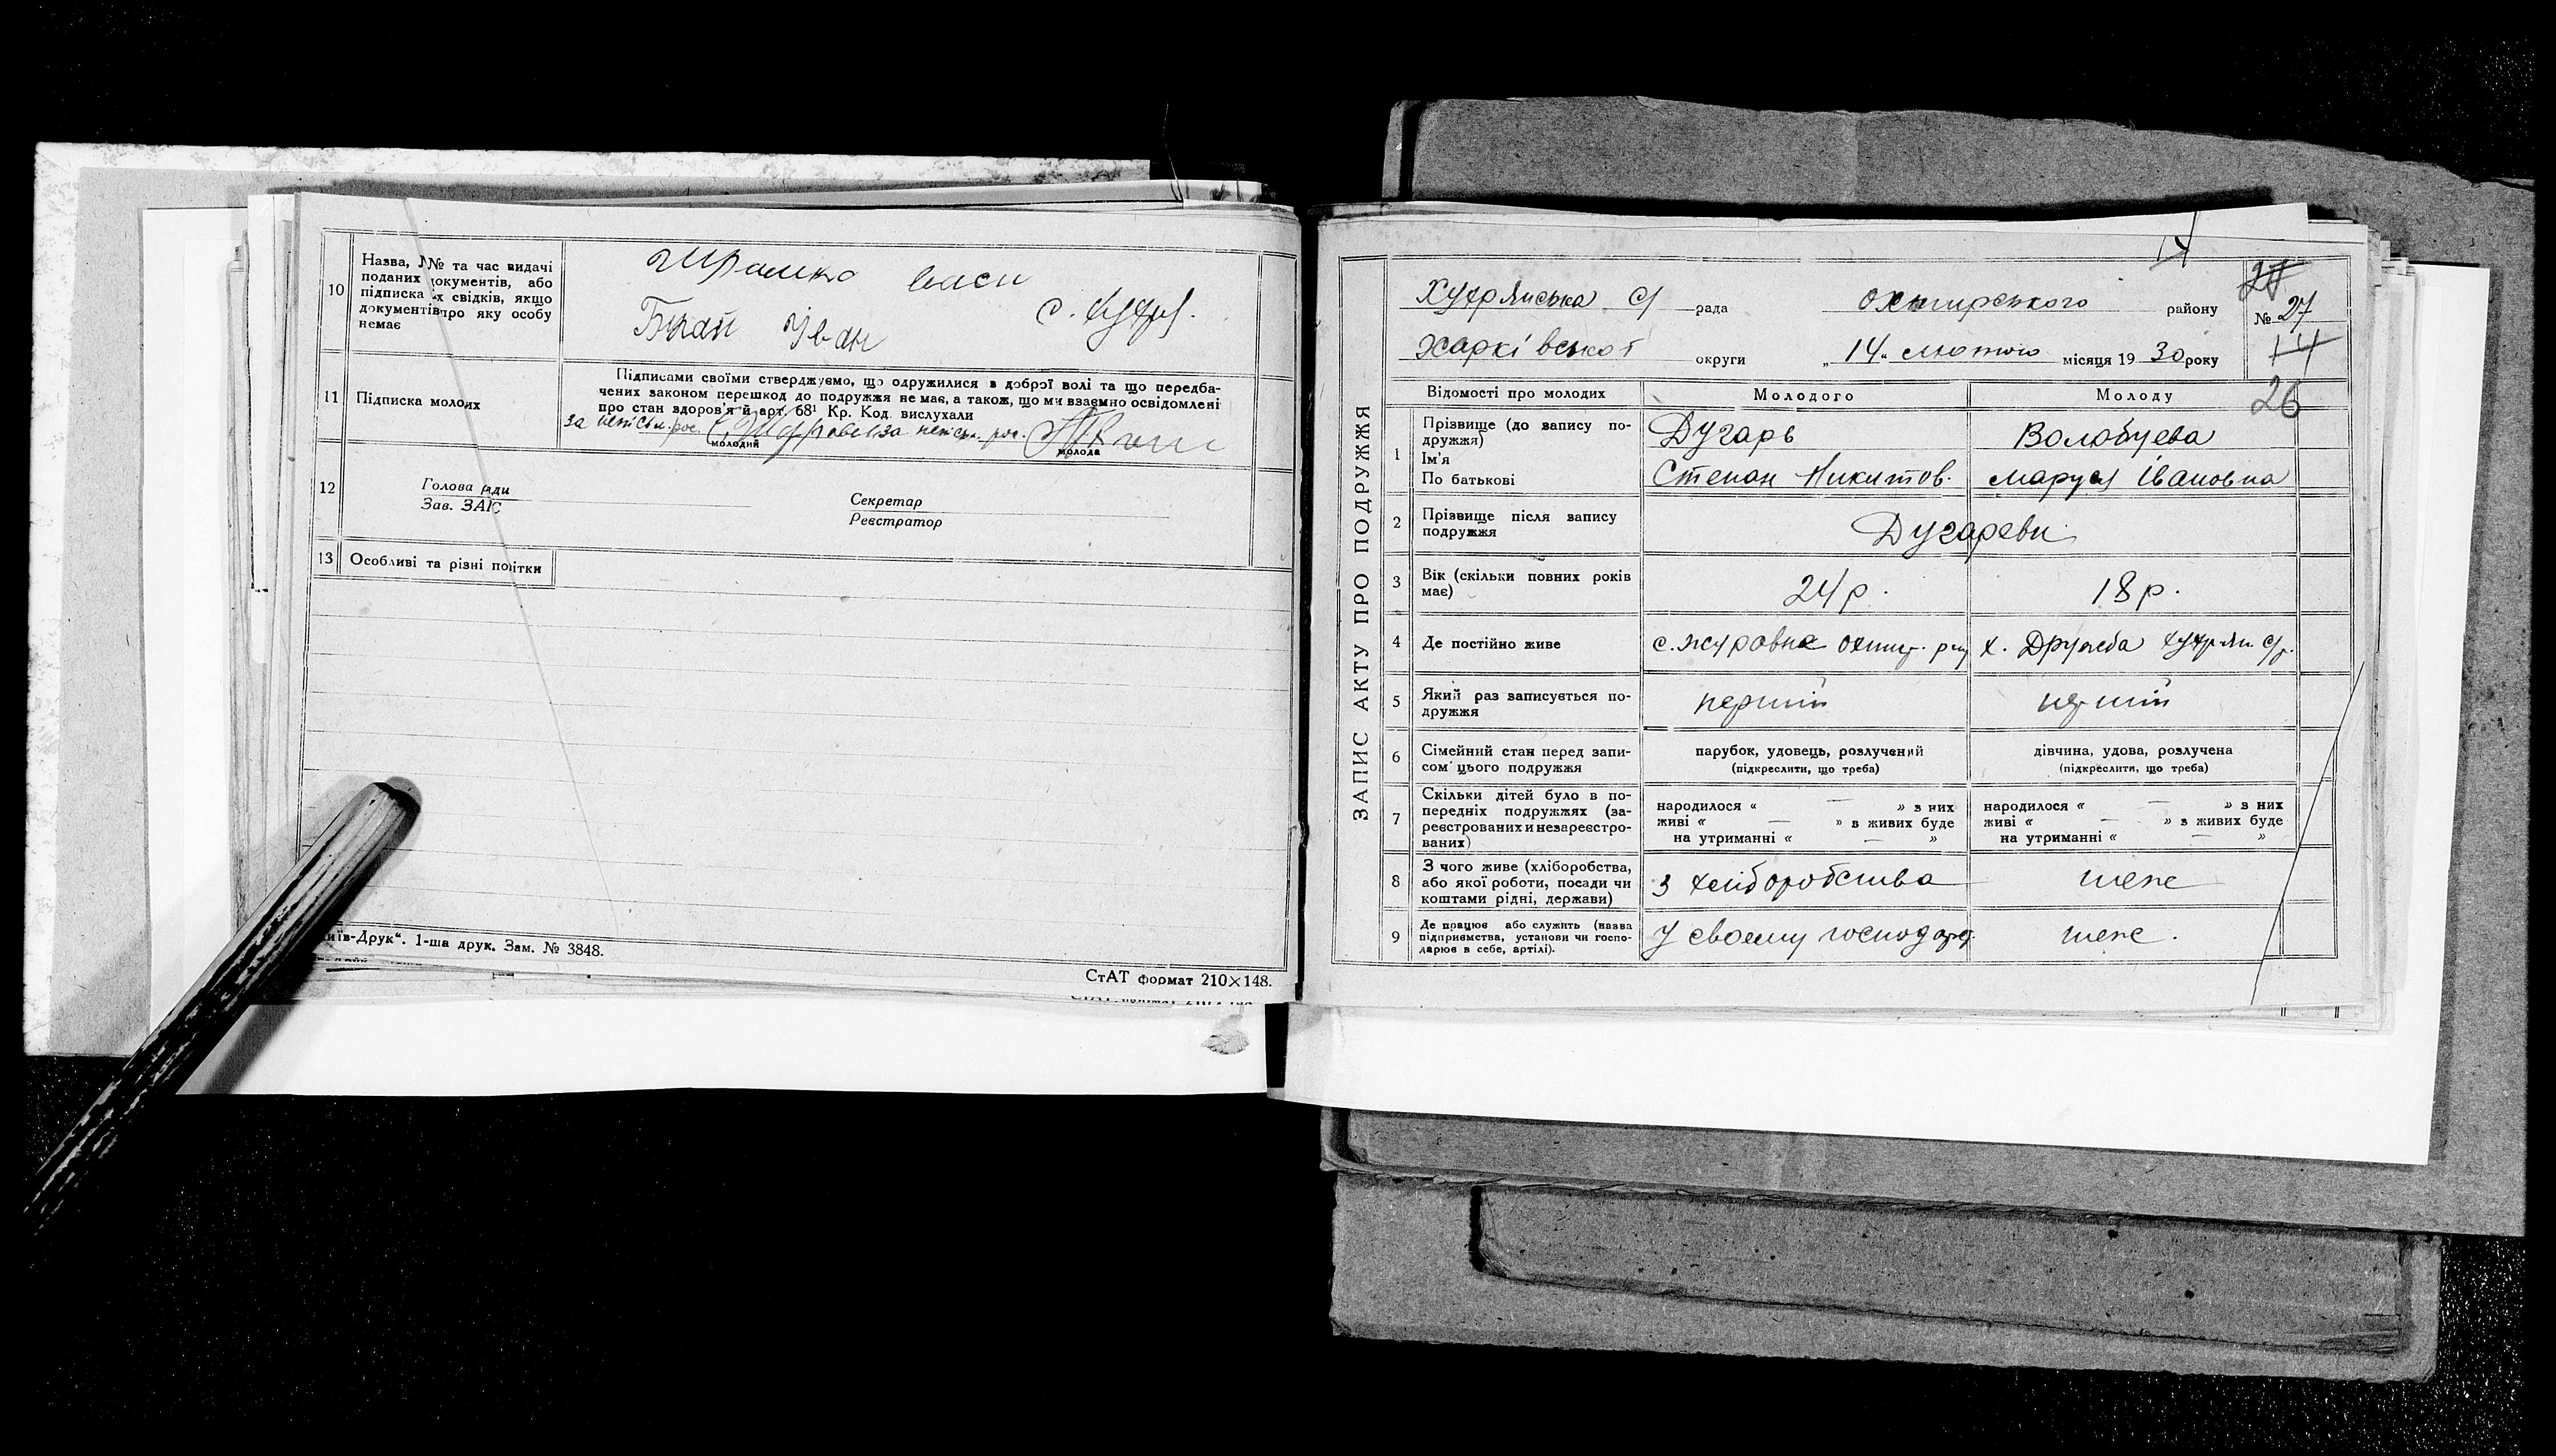 10
Назва, № та час видачі
поданих документів, або
підписка їх свідків, якщо
документів про яку особу
немає
Шрамко Васи
Бугай Іван
11
Підписка молодих
Підписами своїми стверджуємо, що одружилися в доброї волі та що передба-
чених законом перешкод до подружжя не має, а також, що ми взаємно освідомлені
про стан здоров'я й арт. 68¹ Кр. Код. вислухали
за неписьм. рос. за неписьм. рос.
молодий
молода
12
Голова ради
Зав. ЗАГС
Секретар
Реєстратор
13
Особливі та різні помітки
иїв-Друк“. 1-ша друк. Зам. № 3848.
СтАТ формат 210×148.
ЗАПИС АКТУ ПРО ПОДРУЖЖЯ
Хухрянська с/ рада Охтирського району
№ 27
Харківської округи „14“ лютого місяця 1930 року
14
26
Відомості про молодих
Молодого
Молоду
1
Прізвище (до запису по-
дружжя)
Ім'я
По батькові
Дугарь
Волобуева
Степан Никитов.
Маруся Івановна
2
Прізвище після запису
подружжя
Дугареви
3
Вік (скільки повних років
має)
24 р.
18 р.
4
Де постійно живе
с. Журавне Охтир. р-ну
х. Дружба Хухрян. с/р.
5
Який раз записується по-
дружжя
перший
перший
6
Сімейний стан перед запи-
сом цього подружжя
парубок, удовець, розлучений
(підкреслити, що треба)
дівчина, удова, розлучена
(підкреслити, що треба)
7
Скільки дітей було в по-
передніх подружжях (за-
реєстрованих и незареєстро-
ваних)
народилося « — » з них
живі « — » з живих буде
на утриманні « — »
народилося « — » з них
живі « — » з живих буде
на утриманні « — »
8
З чого живе (хліборобства,
або якої роботи, посади чи
коштами рідні, держави)
з хліборобства
теже
9
Де працює або служить (назва
підприємства, установи чи госпо-
дарює в себе, артілі).
У своему господар.
теже.